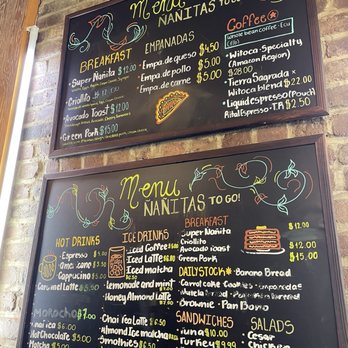 Menu
ÑAÑITAS TO
BREAKFAST
Super Ñañita $12.00
Criollito
Avocado Toast $12.00
Green Pork $15.00
EMPANADAS
Empa.de queso $4.50
Empa.de pollo $5.00
Empa.de carne $5.00
Coffee
Whole bean coffee: Ecu
Witoca Specialty
(Amazon Region)
$28.00
Tierra Sagrada
Witoca blend
$22.00
Liquid espresso (Pouch
Rital Espresso T.R $2.50
Menu
ÑAÑITAS TO GO!
HOT DRINKS
Espresso
Americano
Capuccino
Caramel Latte
Morocho $7.00
Chai Tea $6.00
Hot Chocolate $5.00
Matcha $5.00
ICE DRINKS
Iced Coffee
Iced Latte $6.00
Iced matcha
Lemonade and mint
Honey Almond Latte
Chai Tea Latte
Almond Ice matcha
Smoothies
BREAKFAST
Super Ñañita $12.00
Criollito
Avocado Toast $12.00
Green Pork $15.00
DAILY STOCK Banana Bread
Carrot Cake Cookies
Brownies Pan Bono
SANDWICHES
Tuna $10.00
Turkey $9.99
SALADS
Cesar
Chicken